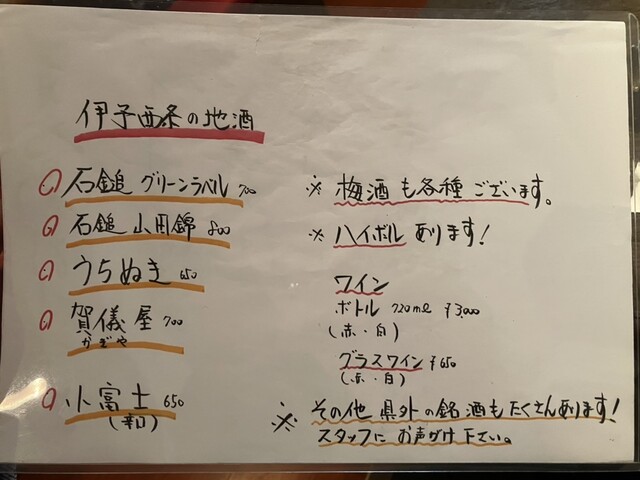 伊予西条の地酒
石鎚 グリーンラベル 700
石鎚 山田錦 800
うちぬき 650
賀儀屋 700
かぎや
小富士 650
(辛口)
※ 梅酒も各種ございます。
※ ハイボールあります!
ワイン
ボトル 720ml ¥3,000
(赤・白)
グラスワイン ¥650
(赤・白)
※ その他 県外の銘酒もたくさんあります!
スタッフに お声がけ下さい。